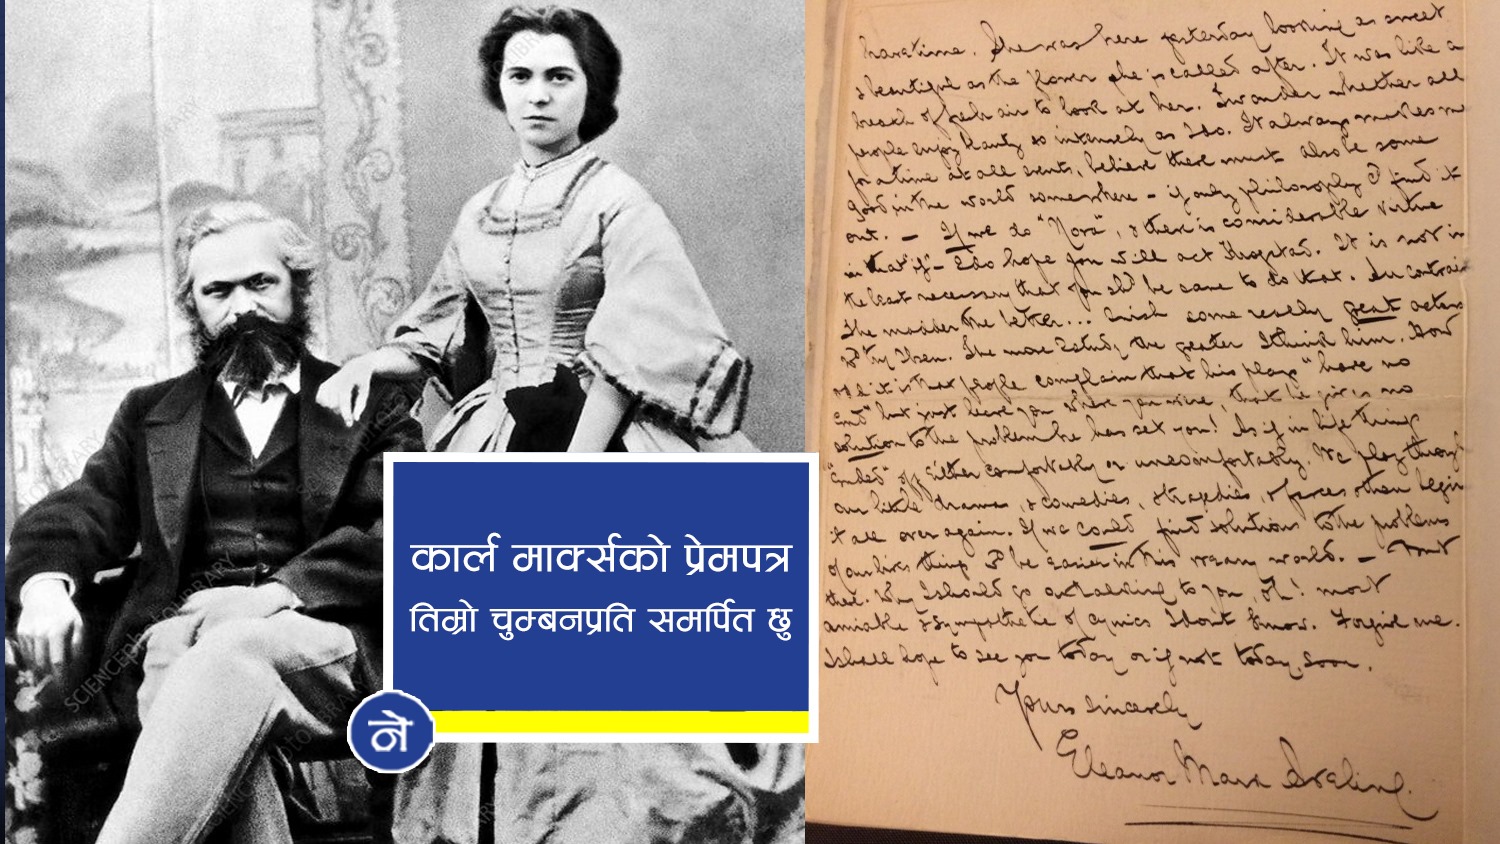 कार्ल मार्क्सको प्रेमपत्र
तिम्रो चुम्बनप्रति समर्पित छु
ने
have time. She was here yesterday looking as sweet
& beautiful as the flower she is called after. It was like a
breath of fresh air to look at her. I wonder whether all
people enjoy beauty so intensely as I do. It always makes me
for a time at all events, believe there must also be some
good in the world somewhere – if only philosophy I find it
out. — If we do "Nora", & there is considerable virtue
in that "if" – I do hope you will act Krogstad. It is not in
the least necessary that you shd be sane to do that. On contrary
the madder the better... I wish some really great actors
wd try Ibsen. The more I study the greater I think him. How
odd it is that people complain that his plays "have no
end" but just leave you where you were, that he gives no
solution to the problem he has set you! As if in life things
"ended" off either comfortably or uncomfortably. We play through
our little dramas, & comedies, & tragedies, & farces & then begin
it all over again. If we could find solutions to the problems
of our lives things wd be easier in this weary world. —
that. Why I should go on talking to you, oh! most
amiable & sympathetic of cynics I don't know. Forgive me.
I shall hope to see you today or if not today, soon.
Yours sincerely
Eleanor Marx Aveling.